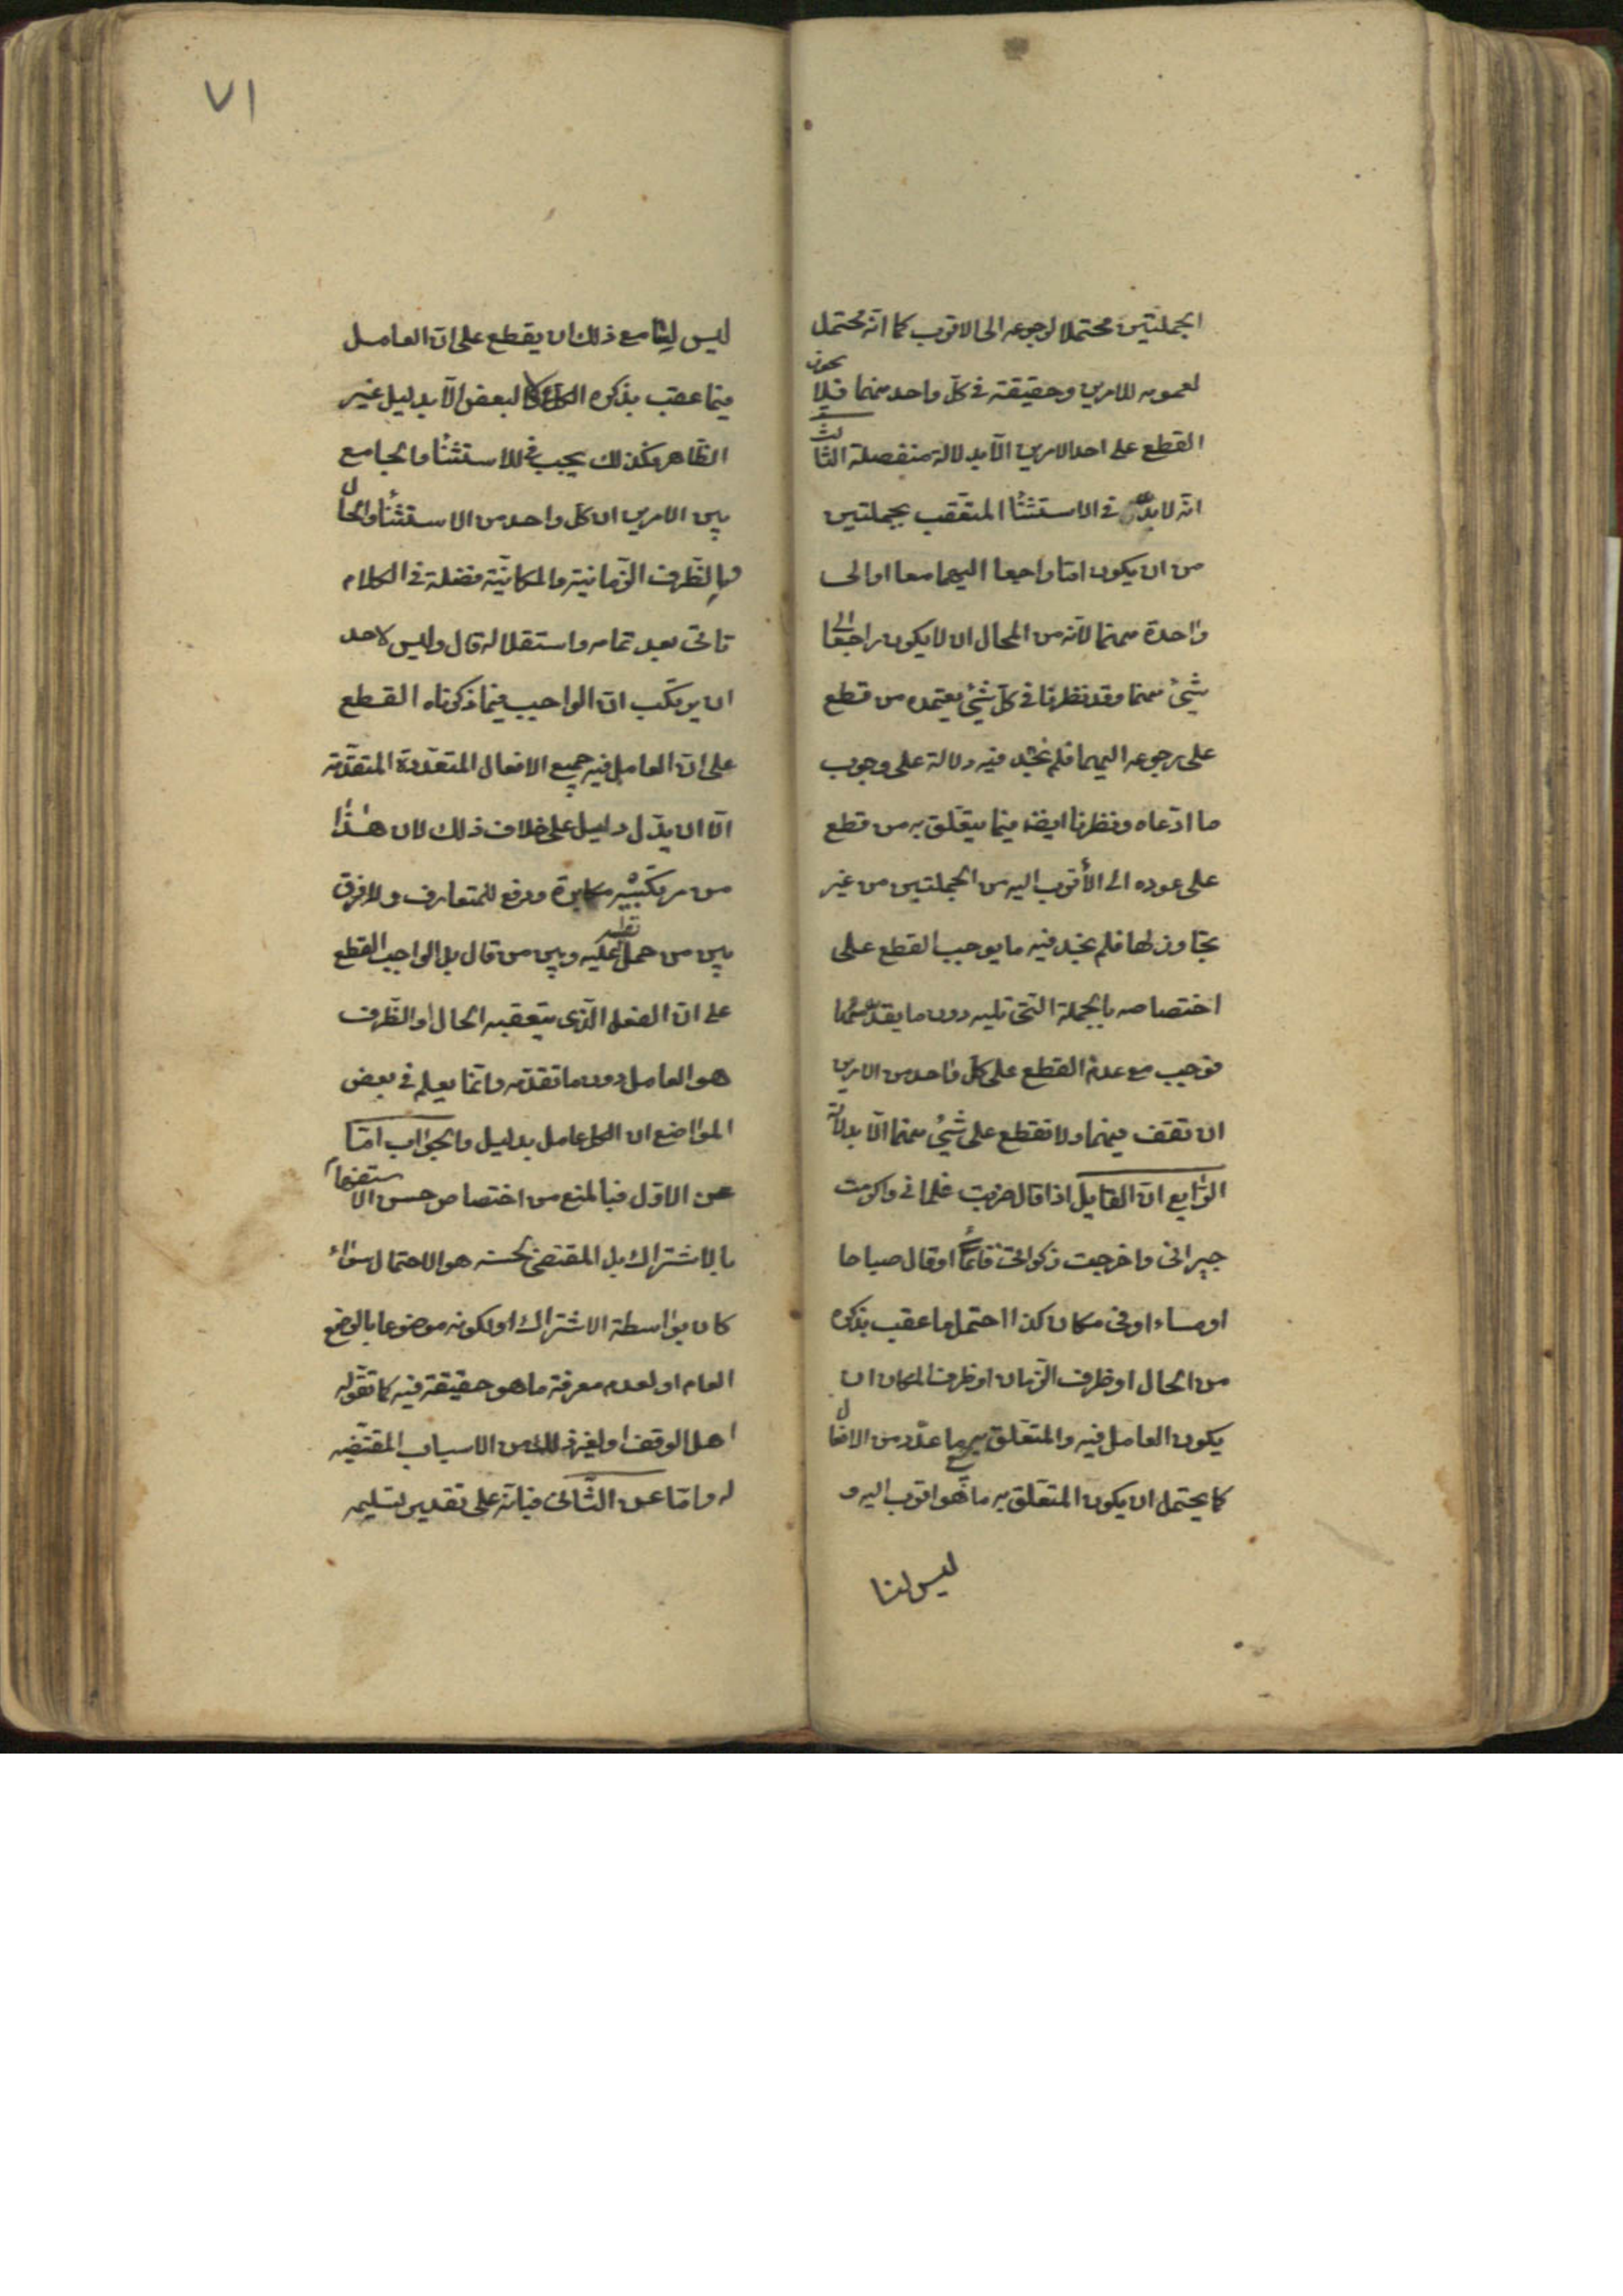 الجملتين محتملا لرجوعه الى الاقرب كما انّه محتمل
لعمومه للامرين وحقيقة في كلّ واحد منهما فلا يجوز
القطع على احد الامرين الّا بدلالة منفصلة الثالث
انّه لابدّ في الاستثناء المتعقب بجملتين
من ان يكون امّا راجعا اليهما معا او الى
واحدة منهما لانّه من المحال ان لا يكون راجعا الى
شيئ منهما وقد نظرنا في كلّ شيئ يعتمده من قطع
على رجوعه اليهما فلم نجد فيه دلالة على وجوب
ما ادّعاه ونظرنا ايضا فيما يتعلّق به من قطع
على عوده الى الأقرب اليه من الجملتين من غير
تجاوز لها فلم نجد فيه ما يوجب القطع على
اختصاصه بالجملة الّتى تليه دون ما تقدمها
فوجب مع عدم القطع على كلّ واحد من الامرين
ان نقف فيهما ولا نقطع على شيئ منهما الّا بدلالة
الرّابع انّ القايل اذا قال ضربت غلمانى واكرمت
جيرانى واخرجت زكوتى قائماً او قال صباحا
او مساء او فى مكان كذا احتمل ما عقب بذكره
من الحال او ظرف الزّمان او ظرف المكان ان
يكون العامل فيه والمتعلّق به جميع ما عدّد من الافعال
كما يحتمل ان يكون المتعلّق به ما هو اقرب اليه و
ليس لنا
٧١
ليس لنا مع ذلك ان يقطع على انّ العامل
فيما عقب بذكره الكلّ ولا البعض الّا بدليل غير
الظّاهر فكذلك يجب في الاستثناء والجامع
بين الامرين ان كلّ واحد من الاستثناء والحال
والظّرف الزّمانية والمكانيّة فضلة في الكلام
تاتى بعد تمامه واستقلاله قال وليس لاحد
ان يرتكب انّ الواجب فيما ذكرناه القطع
على انّ العامل فيه جميع الافعال المتعدّدة المتقدّمة
الّا ان يدّل دليل على خلاف ذلك لان هذا
من مرتكبيه مكابرة ودفع للمتعارف ولا فرق
بين من حمل نفسه عليه وبين من قال بل الواجب القطع
على انّ الفعل الّذى يتعقبه الحال او الظّرف
هو العامل دون ما تقدّمه وانّما يعلم في بعض
المواضع ان الكل عامل بدليل والجواب امّا
عن الاوّل فبالمنع من اختصاص حسن الاستفهام
بالاشتراك بل المقتضى لحسنه هو الاحتمال سواء
كان بواسطة الاشتراك او لكونه موضوعا بالوضع
العام او لعدم معرفة ما هو حقيقة فيه كما تقوله
اهل الوقف او لغير ذلك من الاسباب المقتضيه
له وامّا عن الثّانى فبانّه على تقدير تسليمه